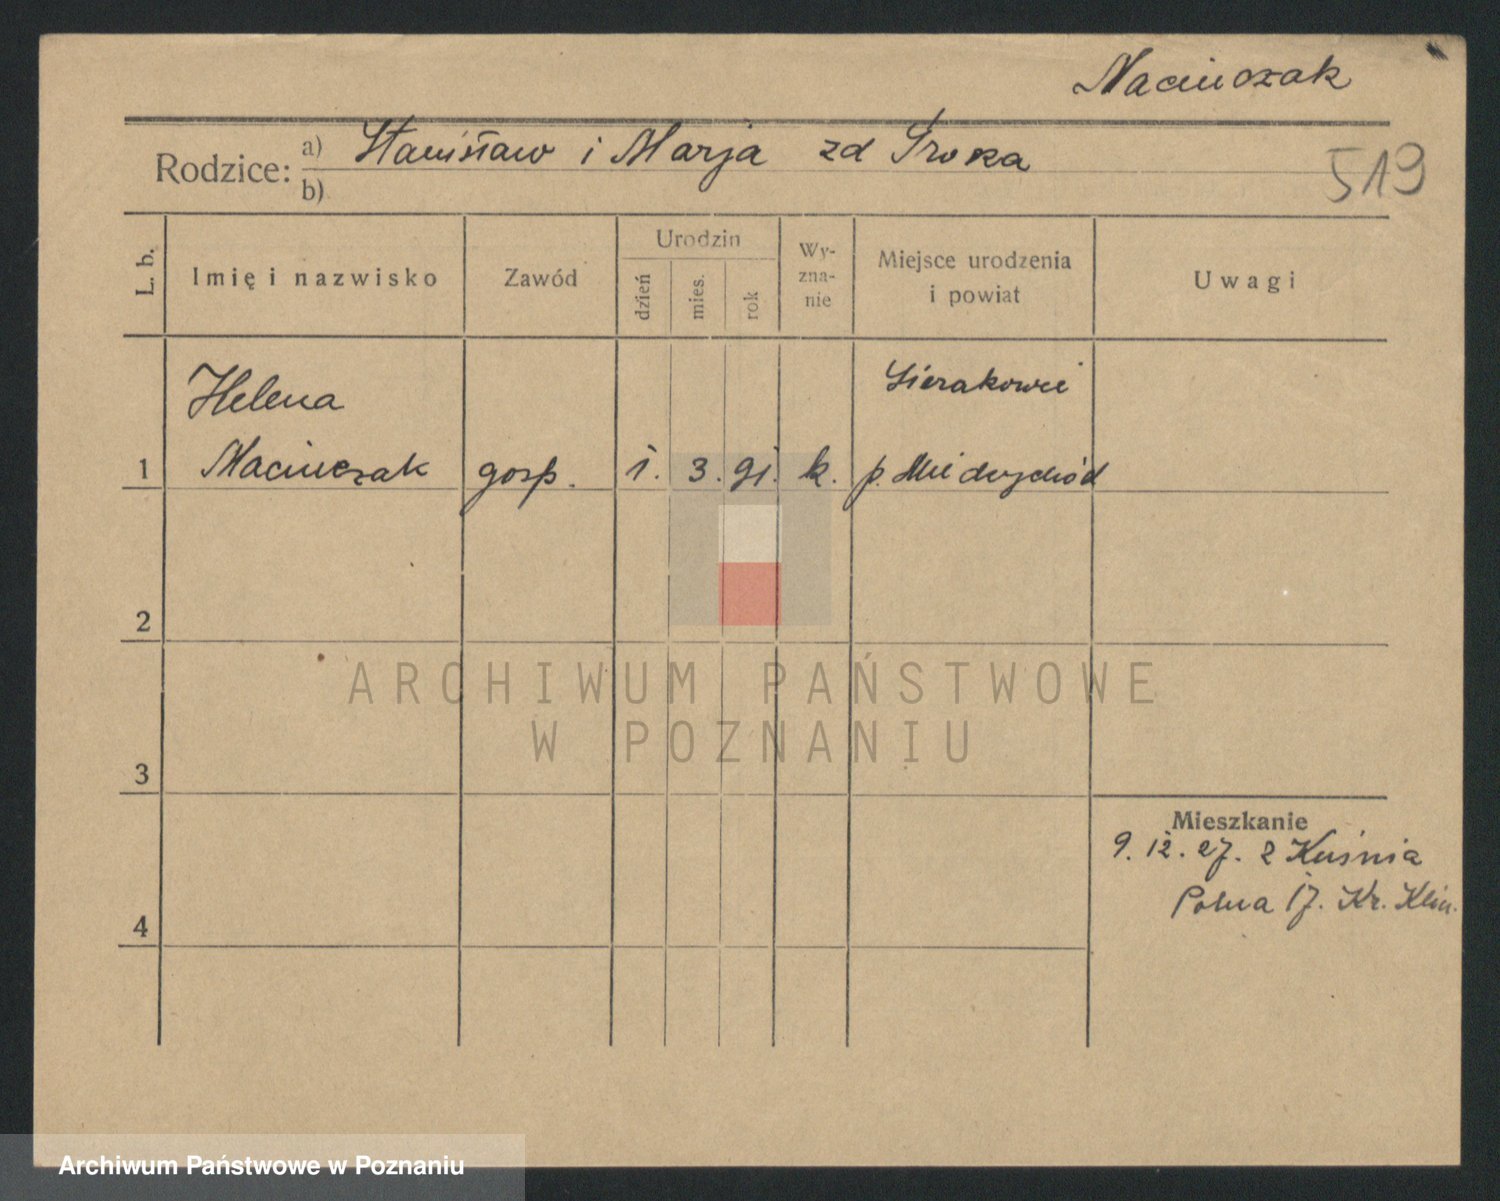 Maciuczak
Rodzice: a) Stanisław i Marja zd Sroka
b)
519
L. b.
Imię i nazwisko
Zawód
Urodzin
dzień
mies.
rok
Wy-
zna-
nie
Miejsce urodzenia
i powiat
Uwagi
Helena
Sierakowci
1 Maciuczak gosp. 1. 3. 91. k. p. Miedzychód
2
3
Mieszkanie
9. 12. 27. z Kuśnia
Polna 17. Kr. Klin.
4
ARCHIWUM PAŃSTWOWE
W POZNANIU
Archiwum Państwowe w Poznaniu